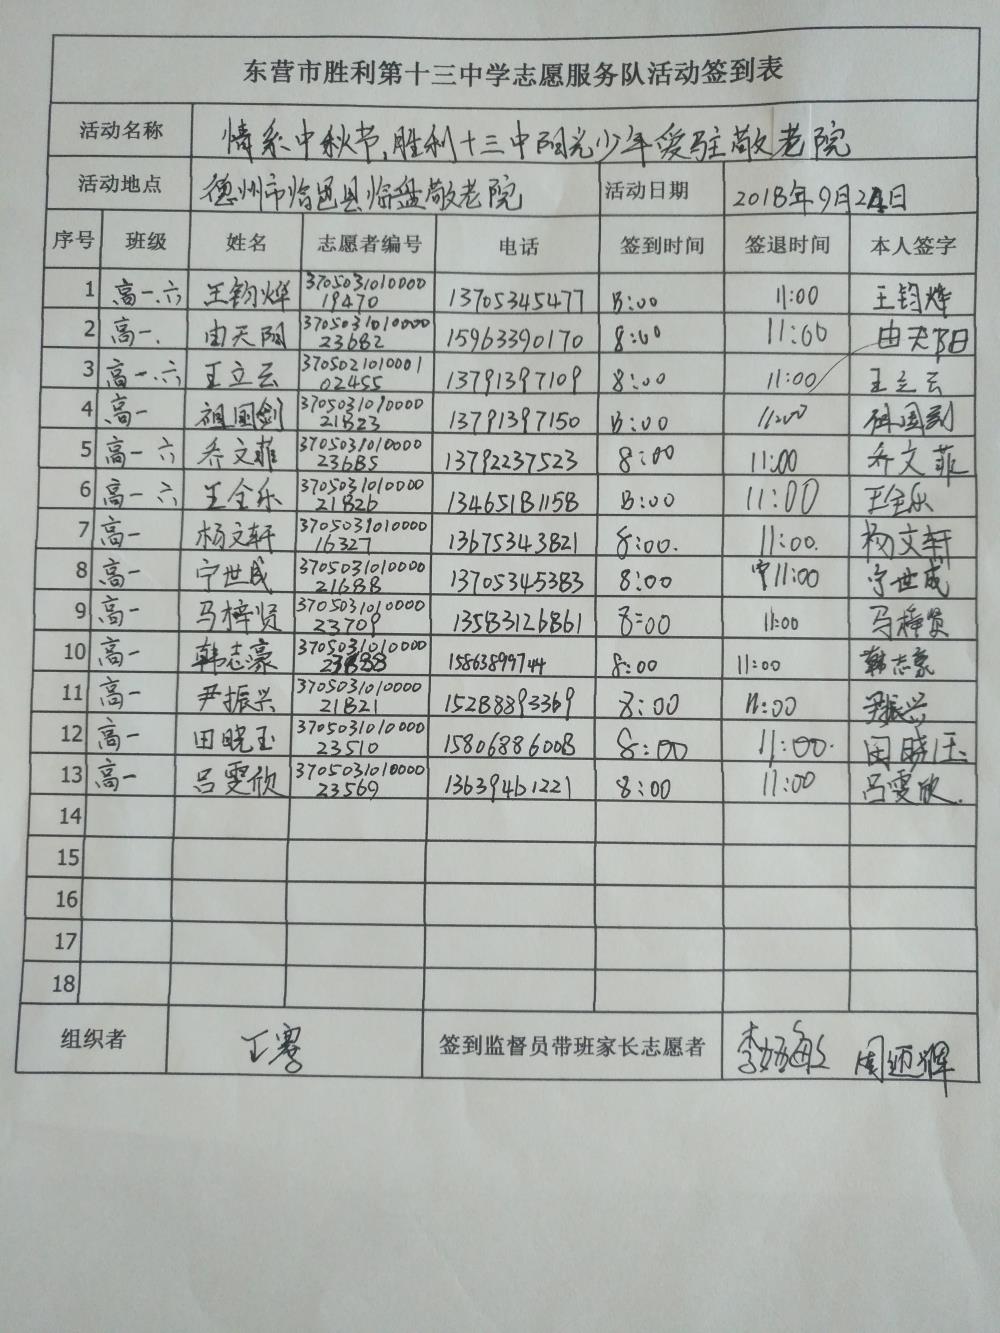 东营市胜利第十三中学志愿服务队活动签到表
活动名称 情系中秋节,胜利十三中阳光少年爱驻敬老院
活动地点 德州市临邑县临盘敬老院 活动日期 2018年9月24日
序号 班级 姓名 志愿者编号 电话 签到时间 签退时间 本人签字
1 高一.六 王钧烨 3705031010000 19470 13705345477 8:00 11:00 王钧烨
2 高一. 由天阳 3705031010000 23682 15963390170 8:00 11:00 由天阳
3 高一.六 王立云 3705021010001 02455 13791397109 8:00 11:00 王立云
4 高一 祖国剑 3705031010000 21823 13791397150 8:00 11:00 祖国剑
5 高一 六 乔文菲 3705031010000 23685 13792237523 8:00 11:00 乔文菲
6 高一 六 王全乐 3705031010000 21826 13465181158 8:00 11:00 王全乐
7 高一 杨文轩 3705031010000 16327 13675343821 8:00. 11:00. 杨文轩
8 高一 宁世成 3705031010000 21688 13705345383 8:00 11:00 宁世成
9 高一 马梓贤 3705031010000 23709 13583126861 8:00 11:00 马梓贤
10 高一 韩志豪 3705031010000 15863899744 8:00 11:00 韩志豪
11 高一 尹振兴 3705031010000 21821 15288893369 8:00 11:00 尹振兴
12 高一 田晓玉 3705031010000 23510 15806886008 8:00 11:00. 田晓玉
13 高一 吕雯欣 3705031010000 23569 13639461221 8:00 11:00 吕雯欣.
14
15
16
17
18
组织者 签到监督员带班家长志愿者